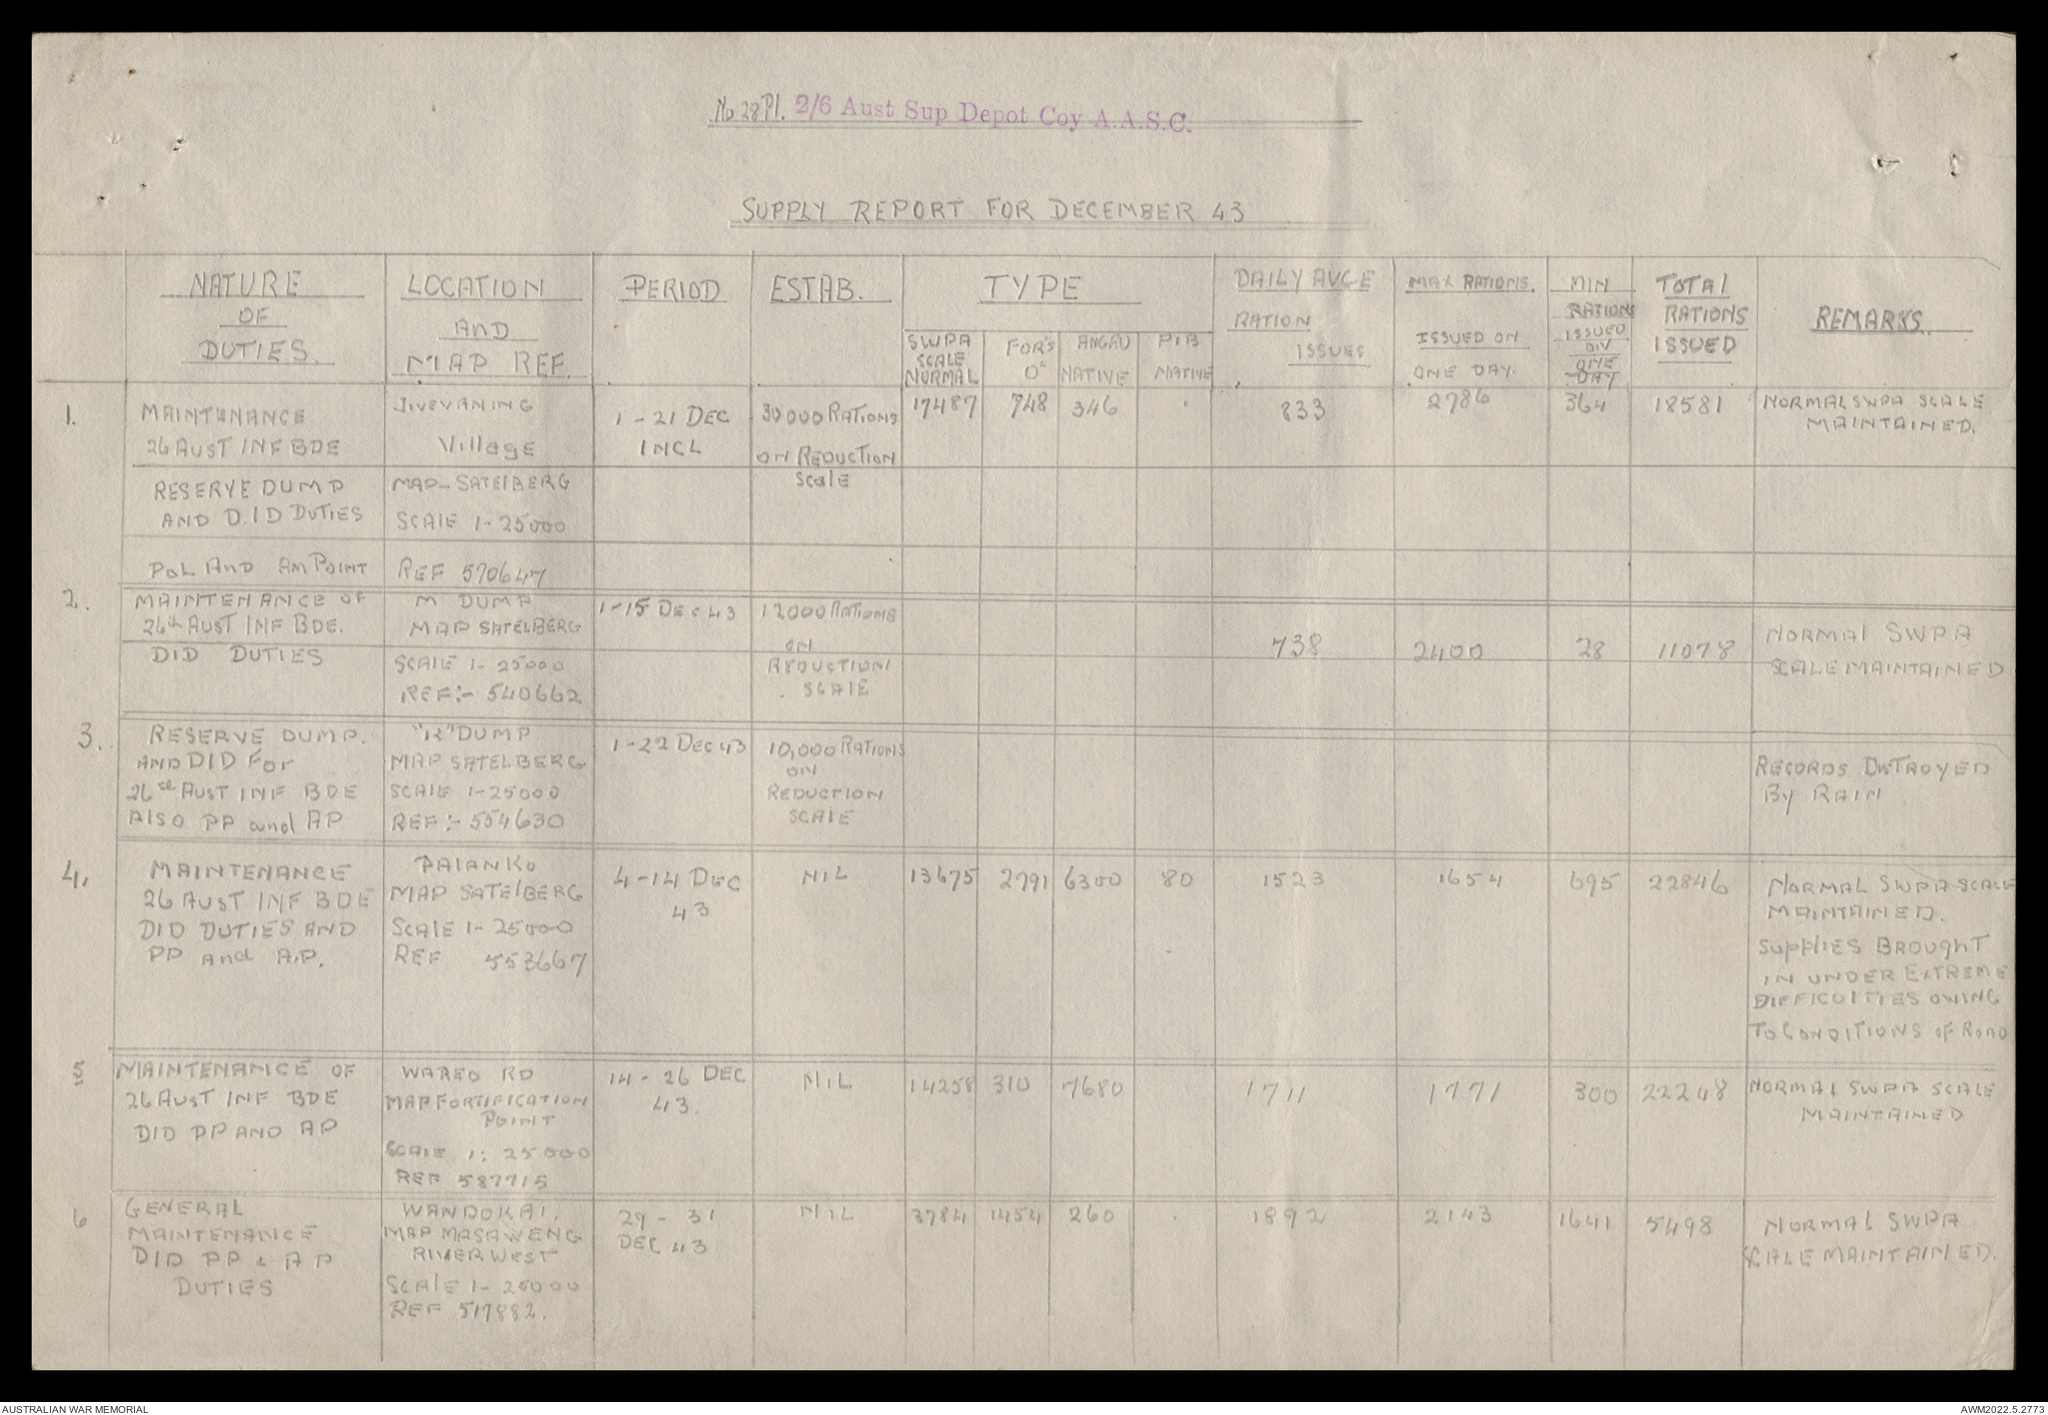 No 28 Pl. 2/6 Aust Sup Depot Coy A.A.S.C.
SUPPLY REPORT FOR DECEMBER 43
NATURE OF DUTIES.
LOCATION AND MAP REF.
PERIOD
ESTAB.
TYPE
SWPA SCALE NORMAL
FOR'S O"
ANGAU NATIVE
PIB NATIVE
DAILY AVGE RATION ISSUES
MAX RATIONS. ISSUED ON ONE DAY.
MIN RATIONS ISSUED ON ONE DAY
TOTAL RATIONS ISSUED
REMARKS.
1.
MAINTENANCE
26 AUST INF BDE
RESERVE DUMP
AND D.I D DUTIES
POL AND AM POINT
JIVEVANING
Village
MAP - SATELBERG
SCALE 1-25000
REF 570647
1 - 21 DEC
INCL
30000 RATIONS
ON REDUCTION
Scale
17487 748 346 833 2786 364 18581
NORMAL SWPA SCALE
MAINTAINED.
2.
MAINTENANCE OF
26th AUST INF BDE.
DID DUTIES
M DUMP
MAP SATELBERG
SCALE 1-25000
REF:- 540662
1-15 DEC 43
12000 RATIONS
ON
REDUCTION
SCALE
738 2400 28 11078
NORMAL SWPA
SCALE MAINTAINED
3.
RESERVE DUMP.
AND DID FOR
26th AUST INF BDE
ALSO PP and AP
"K" DUMP
MAP SATELBERG
SCALE 1-25000
REF:- 554630
1-22 DEC 43
10,000 RATIONS
ON
REDUCTION
SCALE
RECORDS DESTROYED
By RAIN
4.
MAINTENANCE
26 AUST INF BDE
DID DUTIES AND
PP and A.P.
PALANKO
MAP SATELBERG
SCALE 1-25000
REF 553667
4-14 DEC
43
NIL
13675 2791 6300 80 1523 1654 695 22846
NORMAL SWPA SCALE
MAINTAINED.
SUPPLIES BROUGHT
IN UNDER EXTREME
DIFFICULTIES OWING
TO CONDITIONS OF ROAD
5
MAINTENANCE OF
26 AUST INF BDE
DID PP AND AP
WAREO RD
MAP FORTIFICATION
POINT
SCALE 1: 25000
REF 587715
14 - 26 DEC
43.
NIL
14258 310 7680 1711 1771 300 22248
NORMAL SWPA SCALE
MAINTAINED
6
GENERAL
MAINTENANCE
DID PP & AP
DUTIES
WANDOKAI.
MAP MASAWENG
RIVER WEST
SCALE 1-25000
REF 517882.
29 - 31
DEC 43
NIL
3784 1454 260 1892 2143 1641 5498
NORMAL SWPA
SCALE MAINTAINED.
AUSTRALIAN WAR MEMORIAL
AWM2022.5.2773